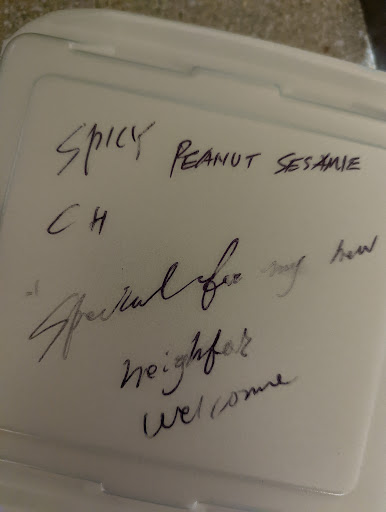 SPICY PEANUT SESAME
CH
Special for my new
neighfor
welcome